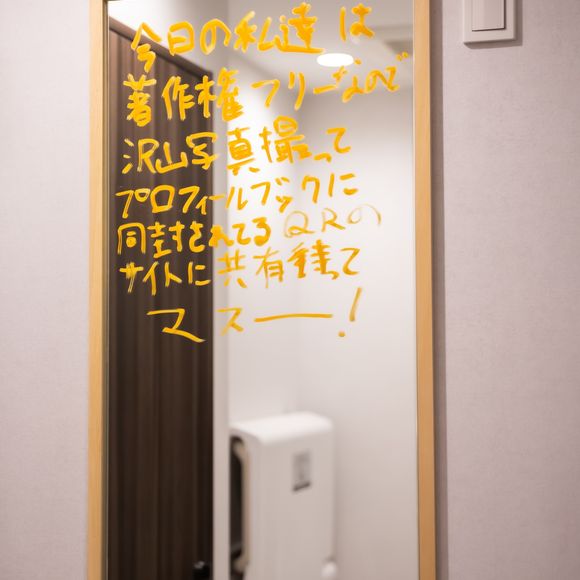 今日の私達は
著作権フリーなので
沢山写真撮って
プロフィールブックに
同封されてるQRの
サイトに共有待って
マスー!